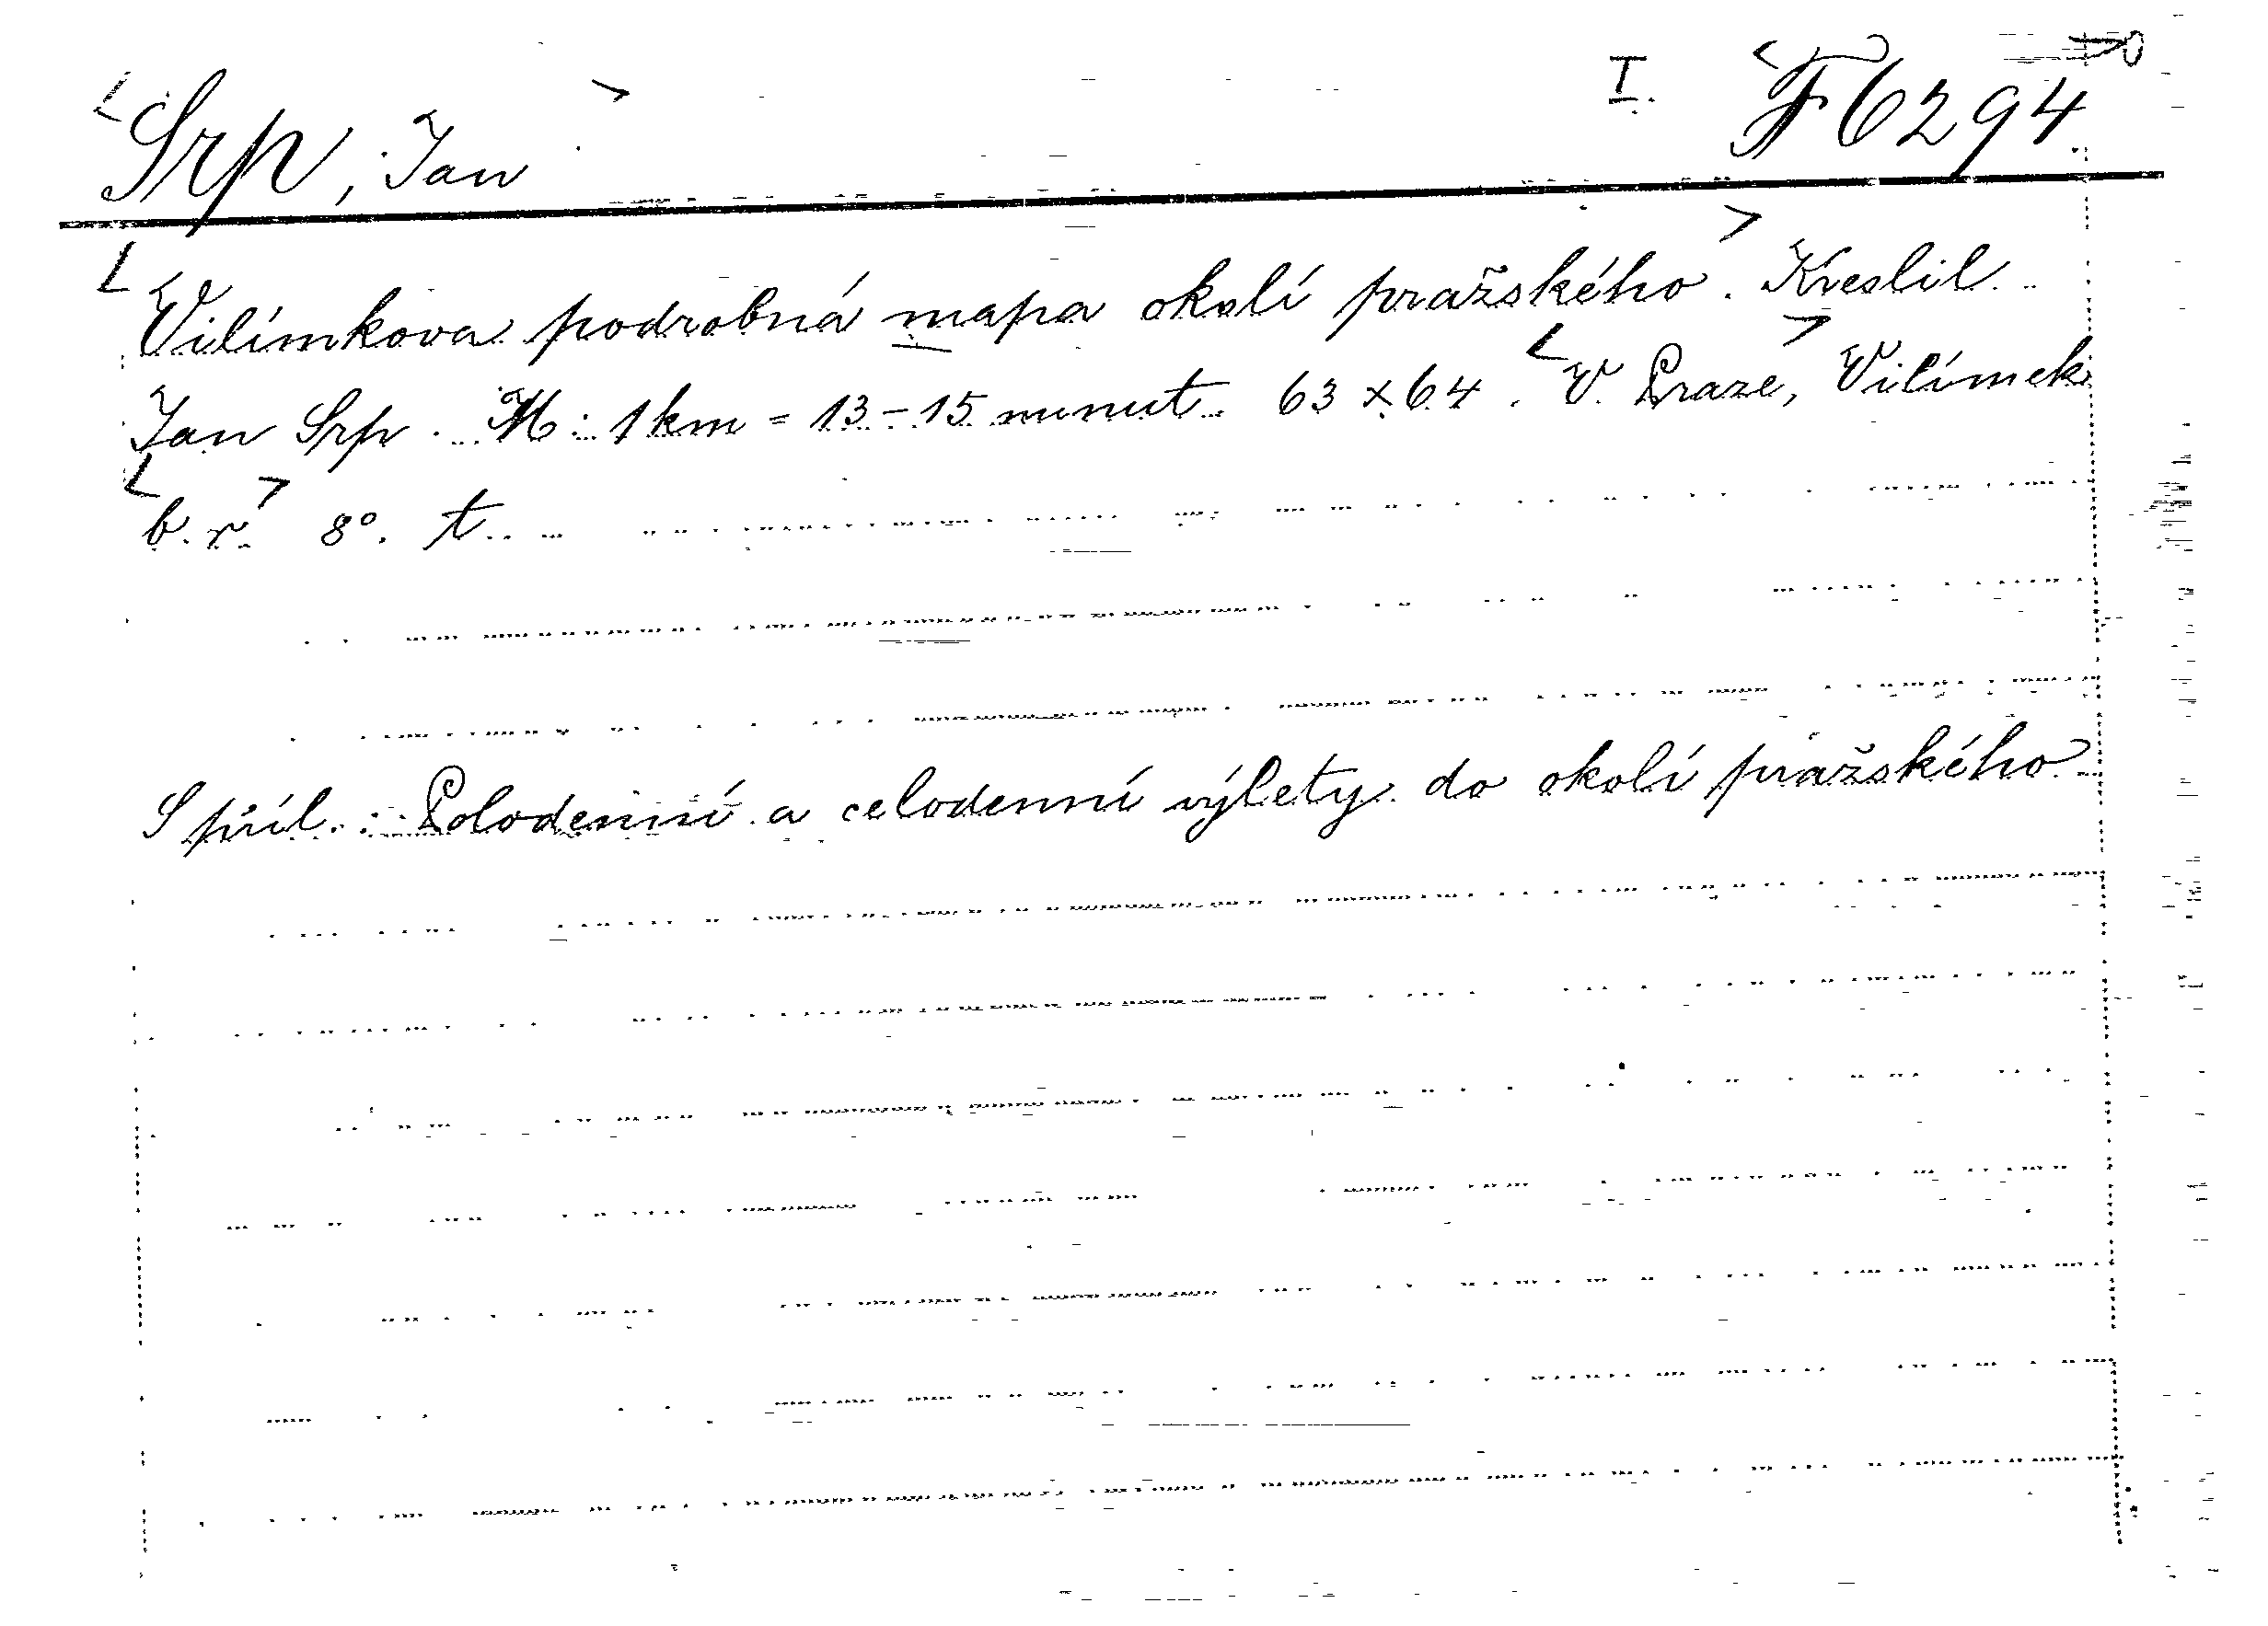 Srp, Jan I. F 6294
Vilímkova podrobná mapa okolí pražského. Kreslil
Jan Srp. M: 1 km = 13-15 minut. 63 x 64. V Praze, Vilímek
b. r. 8°. t.
S příl.: Polodenní a celodenní výlety do okolí pražského